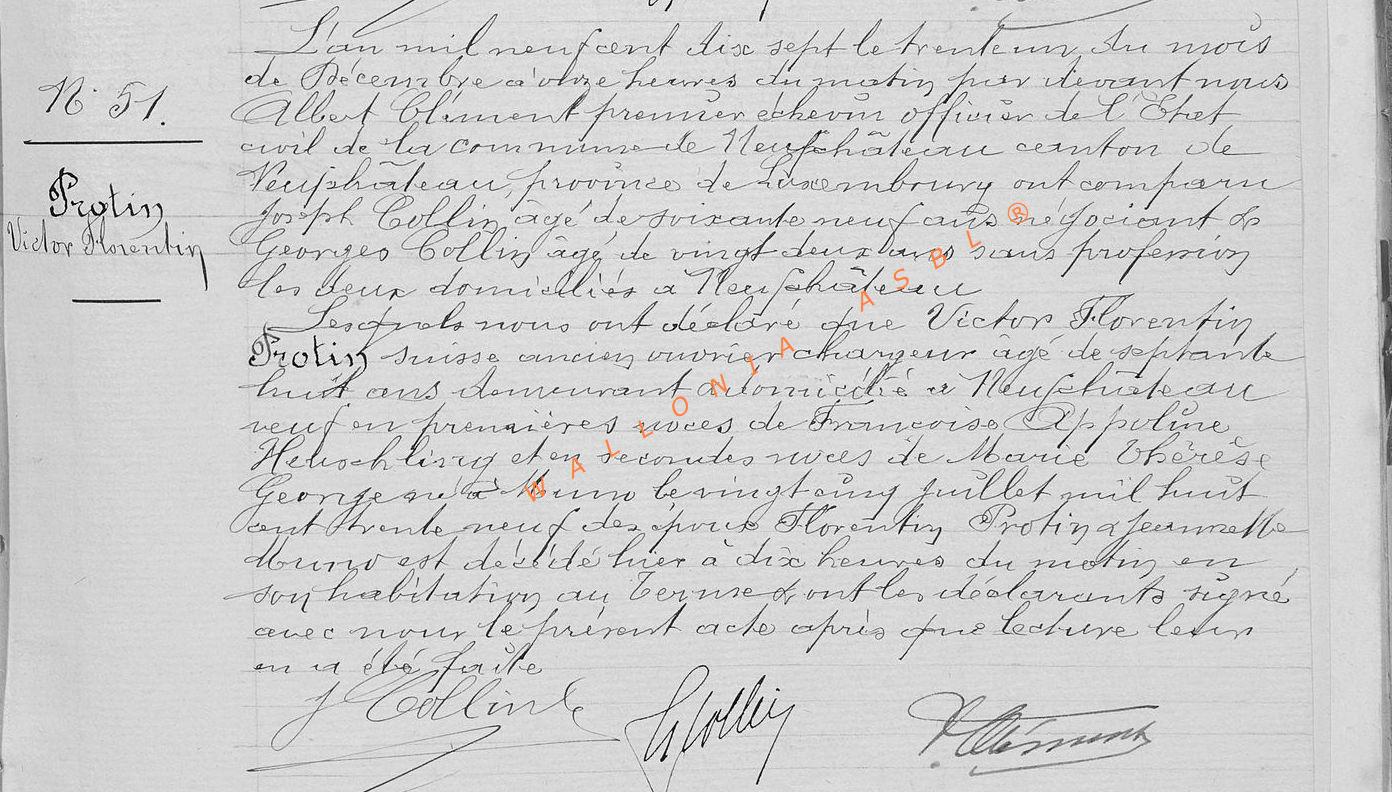 N° 51.
Protin
Victor Florentin
L'an mil neuf cent dix sept le trente un du mois
de Décembre à onze heures du matin par devant nous
Albert Clément premier échevin officier de l'Etat
civil de la commune de Neufchâteau canton de
Neufchâteau, province de Luxembourg ont comparu
Joseph Collin âgé de soixante neuf ans négociant &
Georges Collin âgé de vingt deux ans sans profession
les deux domiciliés à Neufchâteau
Lesquels nous ont déclaré que Victor Florentin
Protin suisse ancien ouvrier chargeur âgé de septante
huit ans demeurant domicilié à Neufchâteau
veuf en premières noces de Françoise Appoline
Heuschling et en secondes noces de Marie Thérèse
George né à Muno le vingt cinq juillet mil huit
cent trente neuf des époux Florentin Protin & Jeannette
Muno est décédé hier à dix heures du matin en
son habitation au Terme & ont les déclarants signé
avec nous le présent acte après que lecture leur
en a été faite
J Collin
G Collin
Clément
WALLONIA ASBL ®